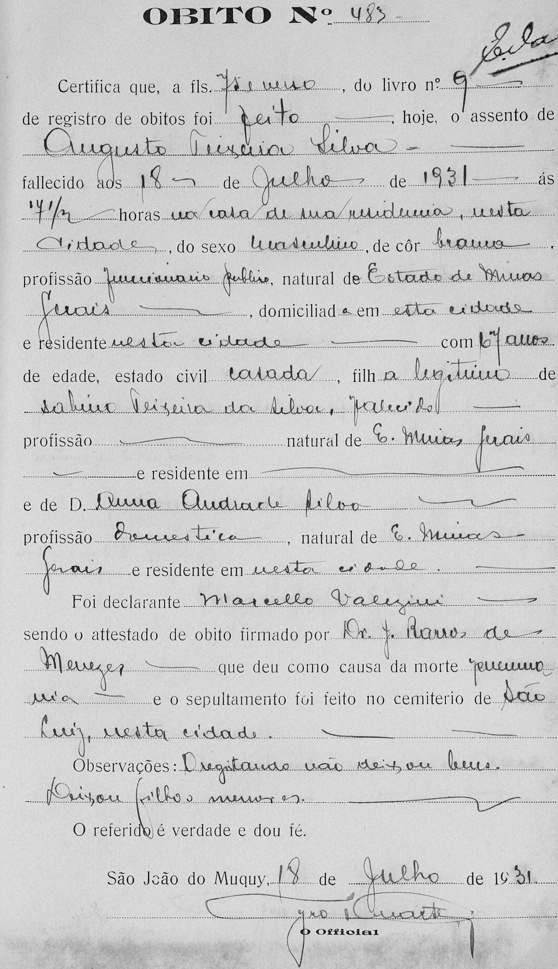 OBITO Nº 483
Certifica que, a fls. 73 verso, do livro nº 9
de registro de obitos foi feito, hoje, o assento de
Augusto Teixeira Silva
fallecido aos 18 de Julho de 1931 ás
17 1/2 horas na casa de sua residencia, nesta
cidade, do sexo masculino, de côr branca.
profissão funccionario publico, natural de Estado de Minas
Geraes, domiciliad o em esta cidade
e residente nesta cidade com 67 annos
de edade, estado civil casado, filh o legitimo de
Sabino Teixeira da Silva, fallecido
profissão natural de E. Minas Geraes
e residente em
e de D. Anna Andrade Silva
profissão domestica, natural de E. Minas
Geraes e residente em nesta cidade.
Foi declarante Marcello
sendo o attestado de obito firmado por Dr. J. Barros de
Menezes que deu como causa da morte pneumo
nia e o sepultamento foi feito no cemiterio de São
Luiz, nesta cidade.
Observações: não deixou bens.
Deixou filhos menores.
O referido é verdade e dou fé.
São João do Muquy, 18 de Julho de 1931
O Official